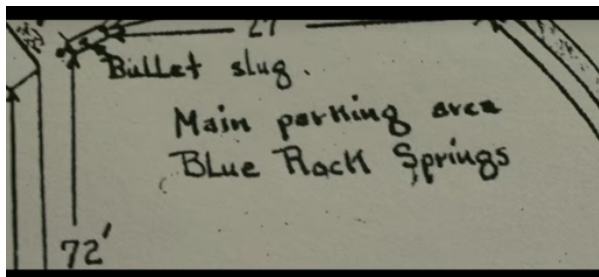 27
Bullet slug.
Main parking area
Blue Rock Springs
72'